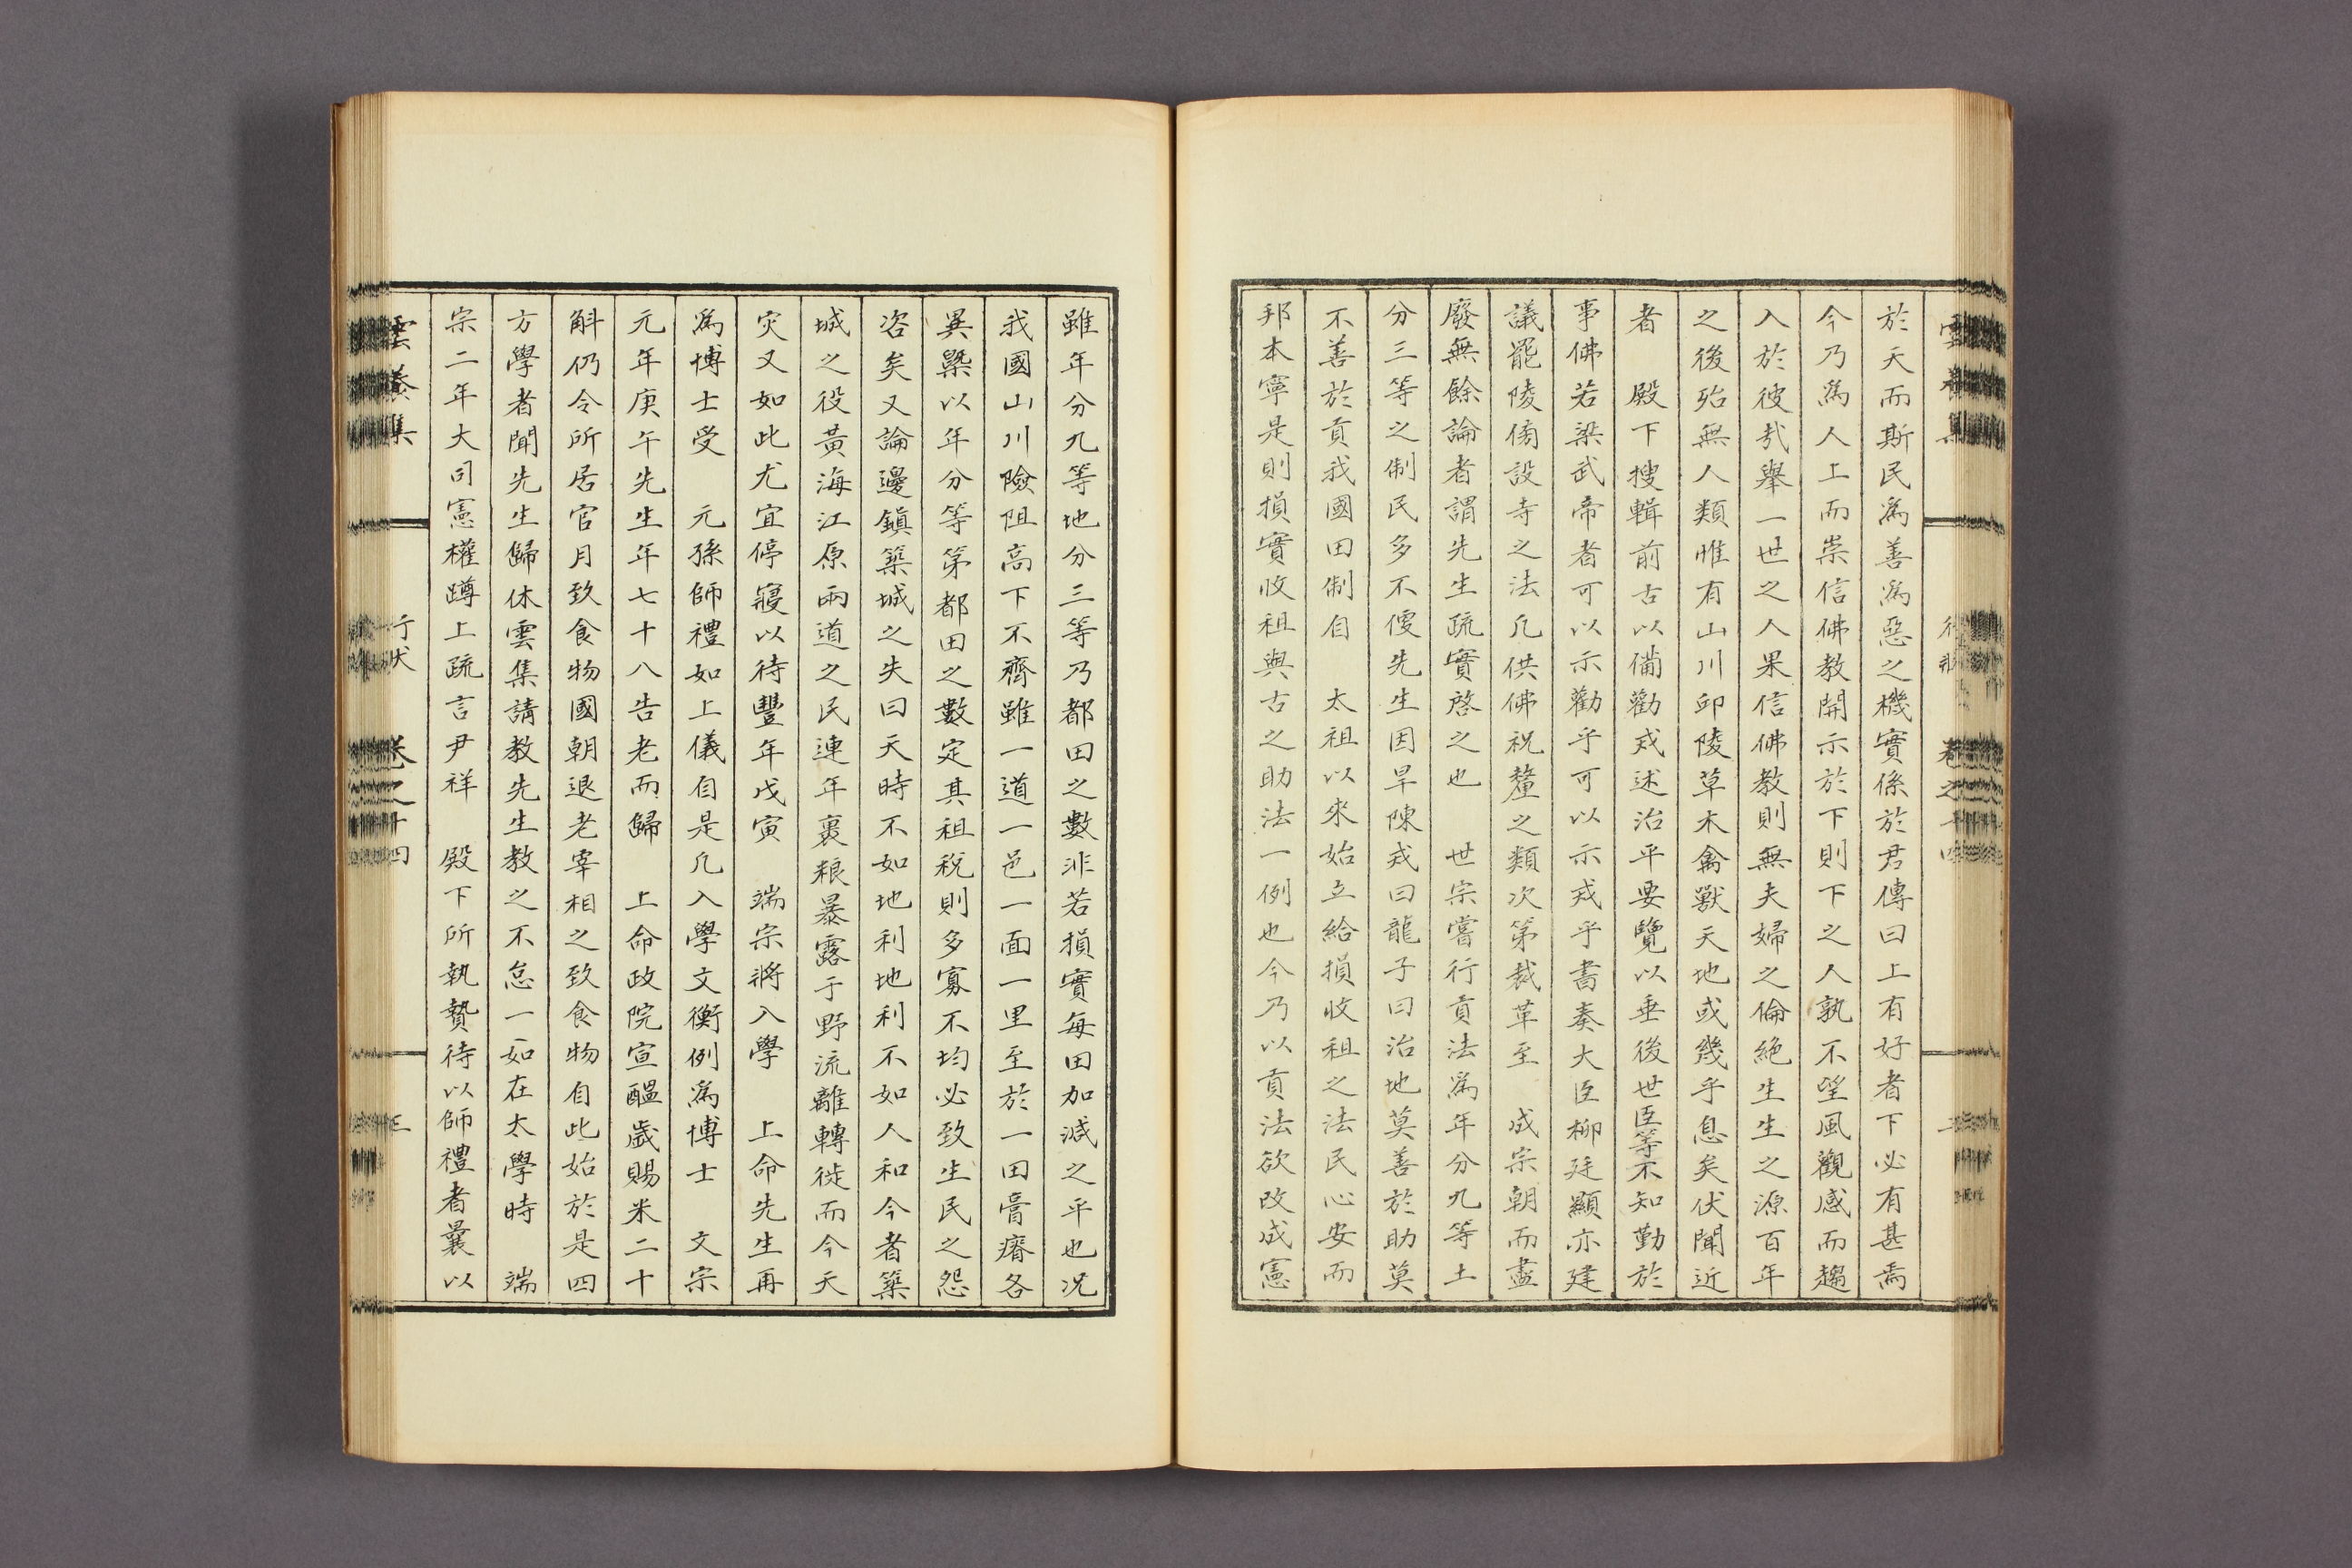 於天而斯民爲善爲惡之機實係於君傳曰上有好者下必有甚焉
今乃爲人上而崇信佛教開示於下則下之人孰不望風觀感而趨
入於彼㦲舉一世之人果信佛教則無夫婦之倫絶生生之源百年
之後殆無人類惟有山川邱陵草木禽獸天地或幾乎息矣伏聞近
者　殿下搜輯前古以備勸戒述治平要覽以垂後世臣等不知勤於
事佛若梁武帝者可以示勸乎可以示戒乎書奏大臣柳廷顯亦建
議罷陵傍設寺之法凡供佛祝釐之類次第裁革至　成宗朝而盡
廢無餘論者謂先生疏實啓之也　世宗嘗行貢法爲年分九等土
分三等之制民多不便先生因旱陳戒曰龍子曰治地莫善於助莫
不善於貢我國田制自　太祖以來始立給損收租之法民心安而
邦本寧是則損實收租與古之助法一例也今乃以貢法欲改成憲
雖年分九等地分三等乃都田之數非若損實每田加減之平也况
我國山川險阻高下不齊雖一道一邑一面一里至於一田膏瘠各
異槩以年分等第都田之數定其租稅則多寡不均必致生民之怨
咨矣又論邊鎭築城之失曰天時不如地利地利不如人和今者築
城之役黃海江原兩道之民連年裹粮暴露于野流離轉徙而今天
灾又如此尤宜停寢以待豐年戊寅　端宗將入學　上命先生再
爲博士受　元孫師禮如上儀自是凡入學文衡例爲博士　文宗
元年庚午先生年七十八告老而歸　上命政院宣醞歲賜米二十
斛仍令所居官月致食物國朝退老宰相之致食物自此始於是四
方學者聞先生歸休雲集請教先生教之不怠一如在太學時　端
宗二年大司憲權蹲上疏言尹祥　殿下所執贄待以師禮者曩以
雲養集　行狀　卷之十四　三